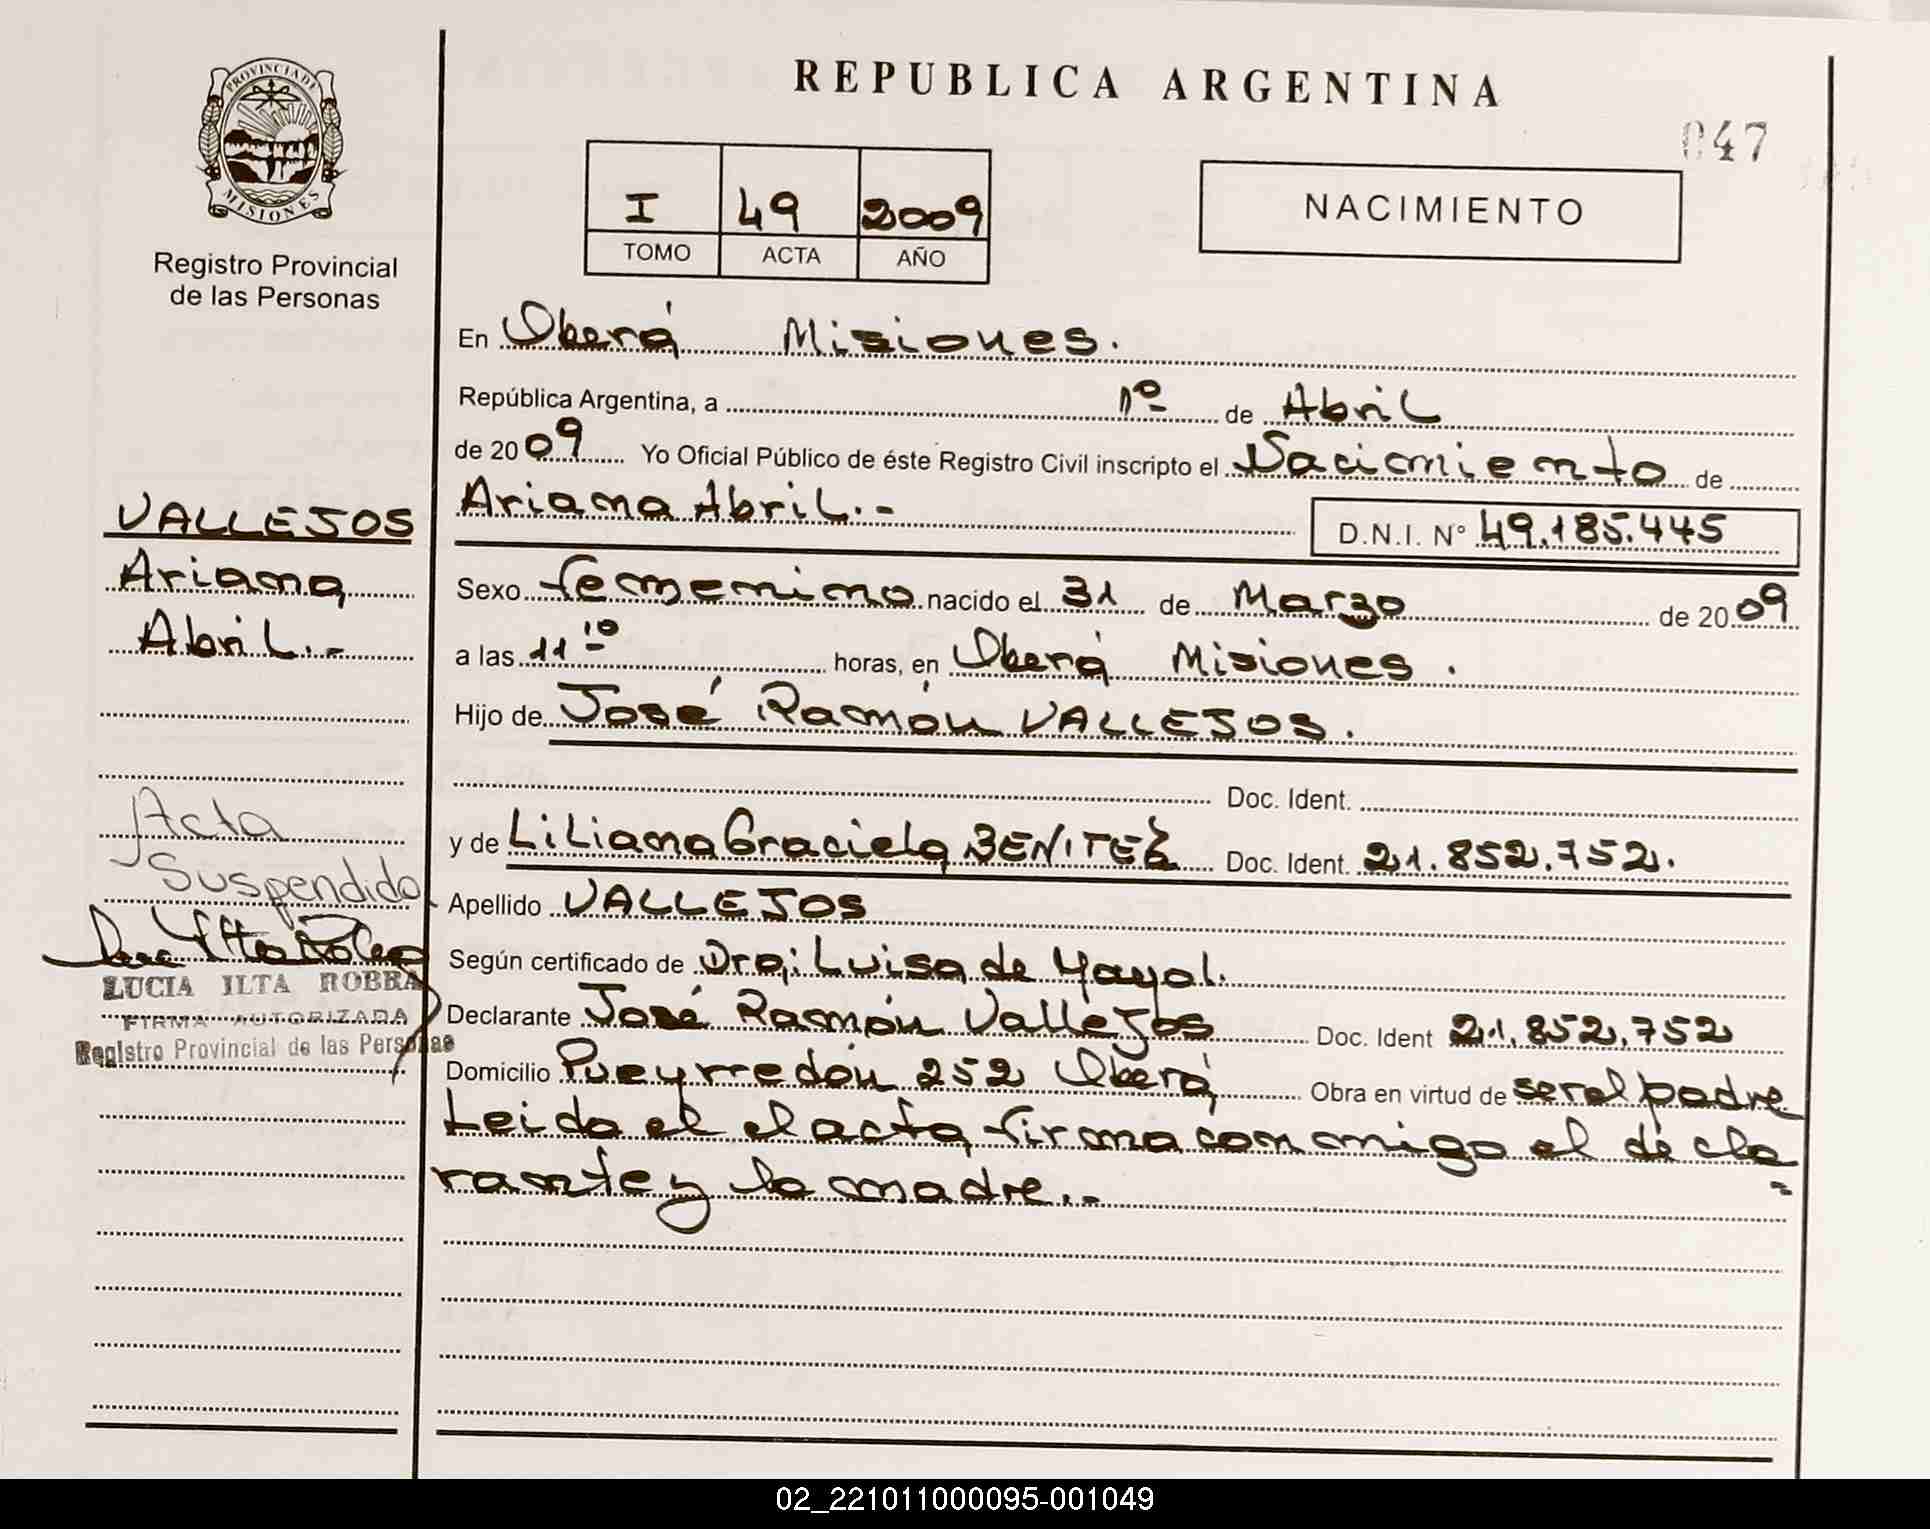 REPUBLICA ARGENTINA
047
PROVINCIA DE
MISIONES
Registro Provincial
de las Personas
I 49 2009
TOMO ACTA AÑO
NACIMIENTO
En Oberá Misiones.
República Argentina, a 1º de Abril
de 2009 Yo Oficial Público de éste Registro Civil inscripto el Nacimiento de
Ariana Abril.-
D.N.I. Nº 49.185.445
VALLEJOS
Ariana
Abril.-
Sexo femenino nacido el 31 de Marzo de 2009
a las 11 10 horas, en Oberá Misiones.
Hijo de José Ramón VALLEJOS.
Doc. Ident.
y de Liliana Graciela BENITEZ Doc. Ident. 21.852.752.
Apellido VALLEJOS
Según certificado de Dra: Luisa de Mayol.
Declarante José Ramón Vallejos Doc. Ident 21.852.752
Domicilio Pueyrredón 252 Oberá Obra en virtud de ser el padre
Leido el el acta, firma con migo el de cla=
rante y la madre.-
Acta
Suspendido
LUCIA ILTA ROBRA
FIRMA AUTORIZADA
Registro Provincial de las Personas
02_221011000095-001049